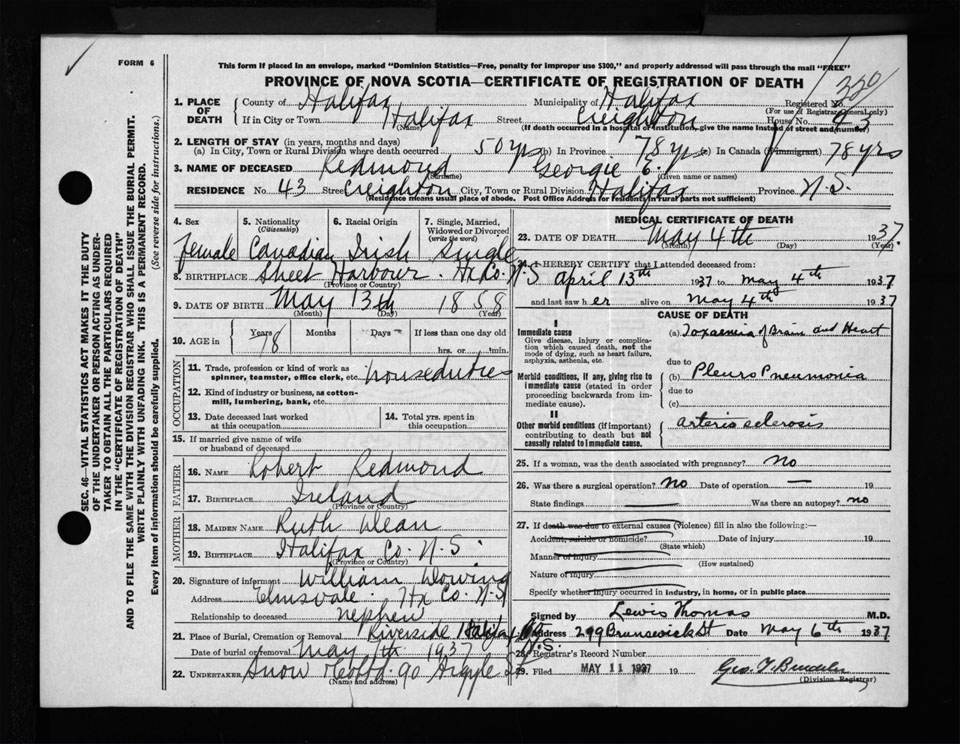 FORM 6
This form if placed in an envelope, marked "Dominion Statistics—Free, penalty for improper use $300," and properly addressed will pass through the mail "FREE"
PROVINCE OF NOVA SCOTIA—CERTIFICATE OF REGISTRATION OF DEATH
320
1. PLACE OF DEATH County of Halifax Municipality of Halifax Registered No.
(For use of Registrar General only)
If in City or Town Halifax Street Creighton House No. 43
(Name) (If death occurred in a hospital or institution, give name instead of street and number)
2. LENGTH OF STAY (in years, months and days)
(a) In City, Town or Rural Division where death occurred 50 yrs (b) In Province 78 yrs (c) In Canada (if immigrant) 78 yrs
3. NAME OF DECEASED Redmond Georgie E.
(Surname) (Given name or names)
RESIDENCE No. 43 Street Creighton City, Town or Rural Division Halifax Province N.S.
(Residence means usual place of abode. Post Office Address for residents in rural parts not sufficient)
4. Sex 5. Nationality (Citizenship) 6. Racial Origin 7. Single, Married, Widowed or Divorced (write the word)
Female Canadian Irish Single
8. BIRTHPLACE Sheet Harbour. Hx Co. N.S
(Province or Country)
9. DATE OF BIRTH May 13th 1858
(Month) (Day) (Year)
10. AGE in Years Months Days If less than one day old
78 hrs. or min.
OCCUPATION
11. Trade, profession or kind of work as spinner, teamster, office clerk, etc. houseduties
12. Kind of industry or business, as cotton-mill, lumbering, bank, etc.
13. Date deceased last worked at this occupation
14. Total yrs. spent in this occupation
15. If married give name of wife or husband of deceased
FATHER
16. NAME Robert Redmond
17. BIRTHPLACE Ireland
(Province or Country)
MOTHER
18. MAIDEN NAME Ruth
19. BIRTHPLACE Halifax Co. N.S.
(Province or Country)
20. Signature of informant William
Address Elmsvale. Hx Co. N.S
Relationship to deceased nephew
21. Place of Burial, Cremation or Removal Riverside Halifax Co N.S.
Date of burial or removal May 7th 1937
22. UNDERTAKER Snow & Co Ltd 90 Argyle St
(Name and address)
MEDICAL CERTIFICATE OF DEATH
23. DATE OF DEATH May 4th 1937.
(Month) (Day) (Year)
24. I HEREBY CERTIFY that I attended deceased from:
April 13th 1937 to May 4th 1937
and last saw her alive on May 4th 1937
CAUSE OF DEATH
I
Immediate cause (a) Toxaemia of Brain and Heart
Give disease, injury or complication which caused death, not the mode of dying, such as heart failure, asphyxia, asthenia, etc.
due to
Morbid conditions, if any, giving rise to immediate cause (stated in order proceeding backwards from immediate cause).
(b) Pleuro Pneumonia
due to
(c)
II
Other morbid conditions (if important) contributing to death but not causally related to immediate cause.
Arterio sclerosis
25. If a woman, was the death associated with pregnancy? No
26. Was there a surgical operation? No Date of operation — 19
State findings Was there an autopsy? no
27. If death was due to external causes (violence) fill in also the following:—
Accident, suicide or homicide? Date of injury 19
(State which)
Manner of injury
(How sustained)
Nature of injury
Specify whether injury occurred in industry, in home, or in public place
Signed by Lewis Thomas M.D.
Address 299 Brunswick St Date May 6th 1937
28. Registrar's Record Number
29. Filed MAY 11 1937 19
(Division Registrar)
SEC. 46—VITAL STATISTICS ACT MAKES IT THE DUTY
OF THE UNDERTAKER OR PERSON ACTING AS UNDER-
TAKER TO OBTAIN ALL THE PARTICULARS REQUIRED
IN THE "CERTIFICATE OF REGISTRATION OF DEATH"
AND TO FILE THE SAME WITH THE DIVISION REGISTRAR WHO SHALL ISSUE THE BURIAL PERMIT.
WRITE PLAINLY WITH UNFADING INK. THIS IS A PERMANENT RECORD.
Every item of information should be carefully supplied. (See reverse side for instructions.)